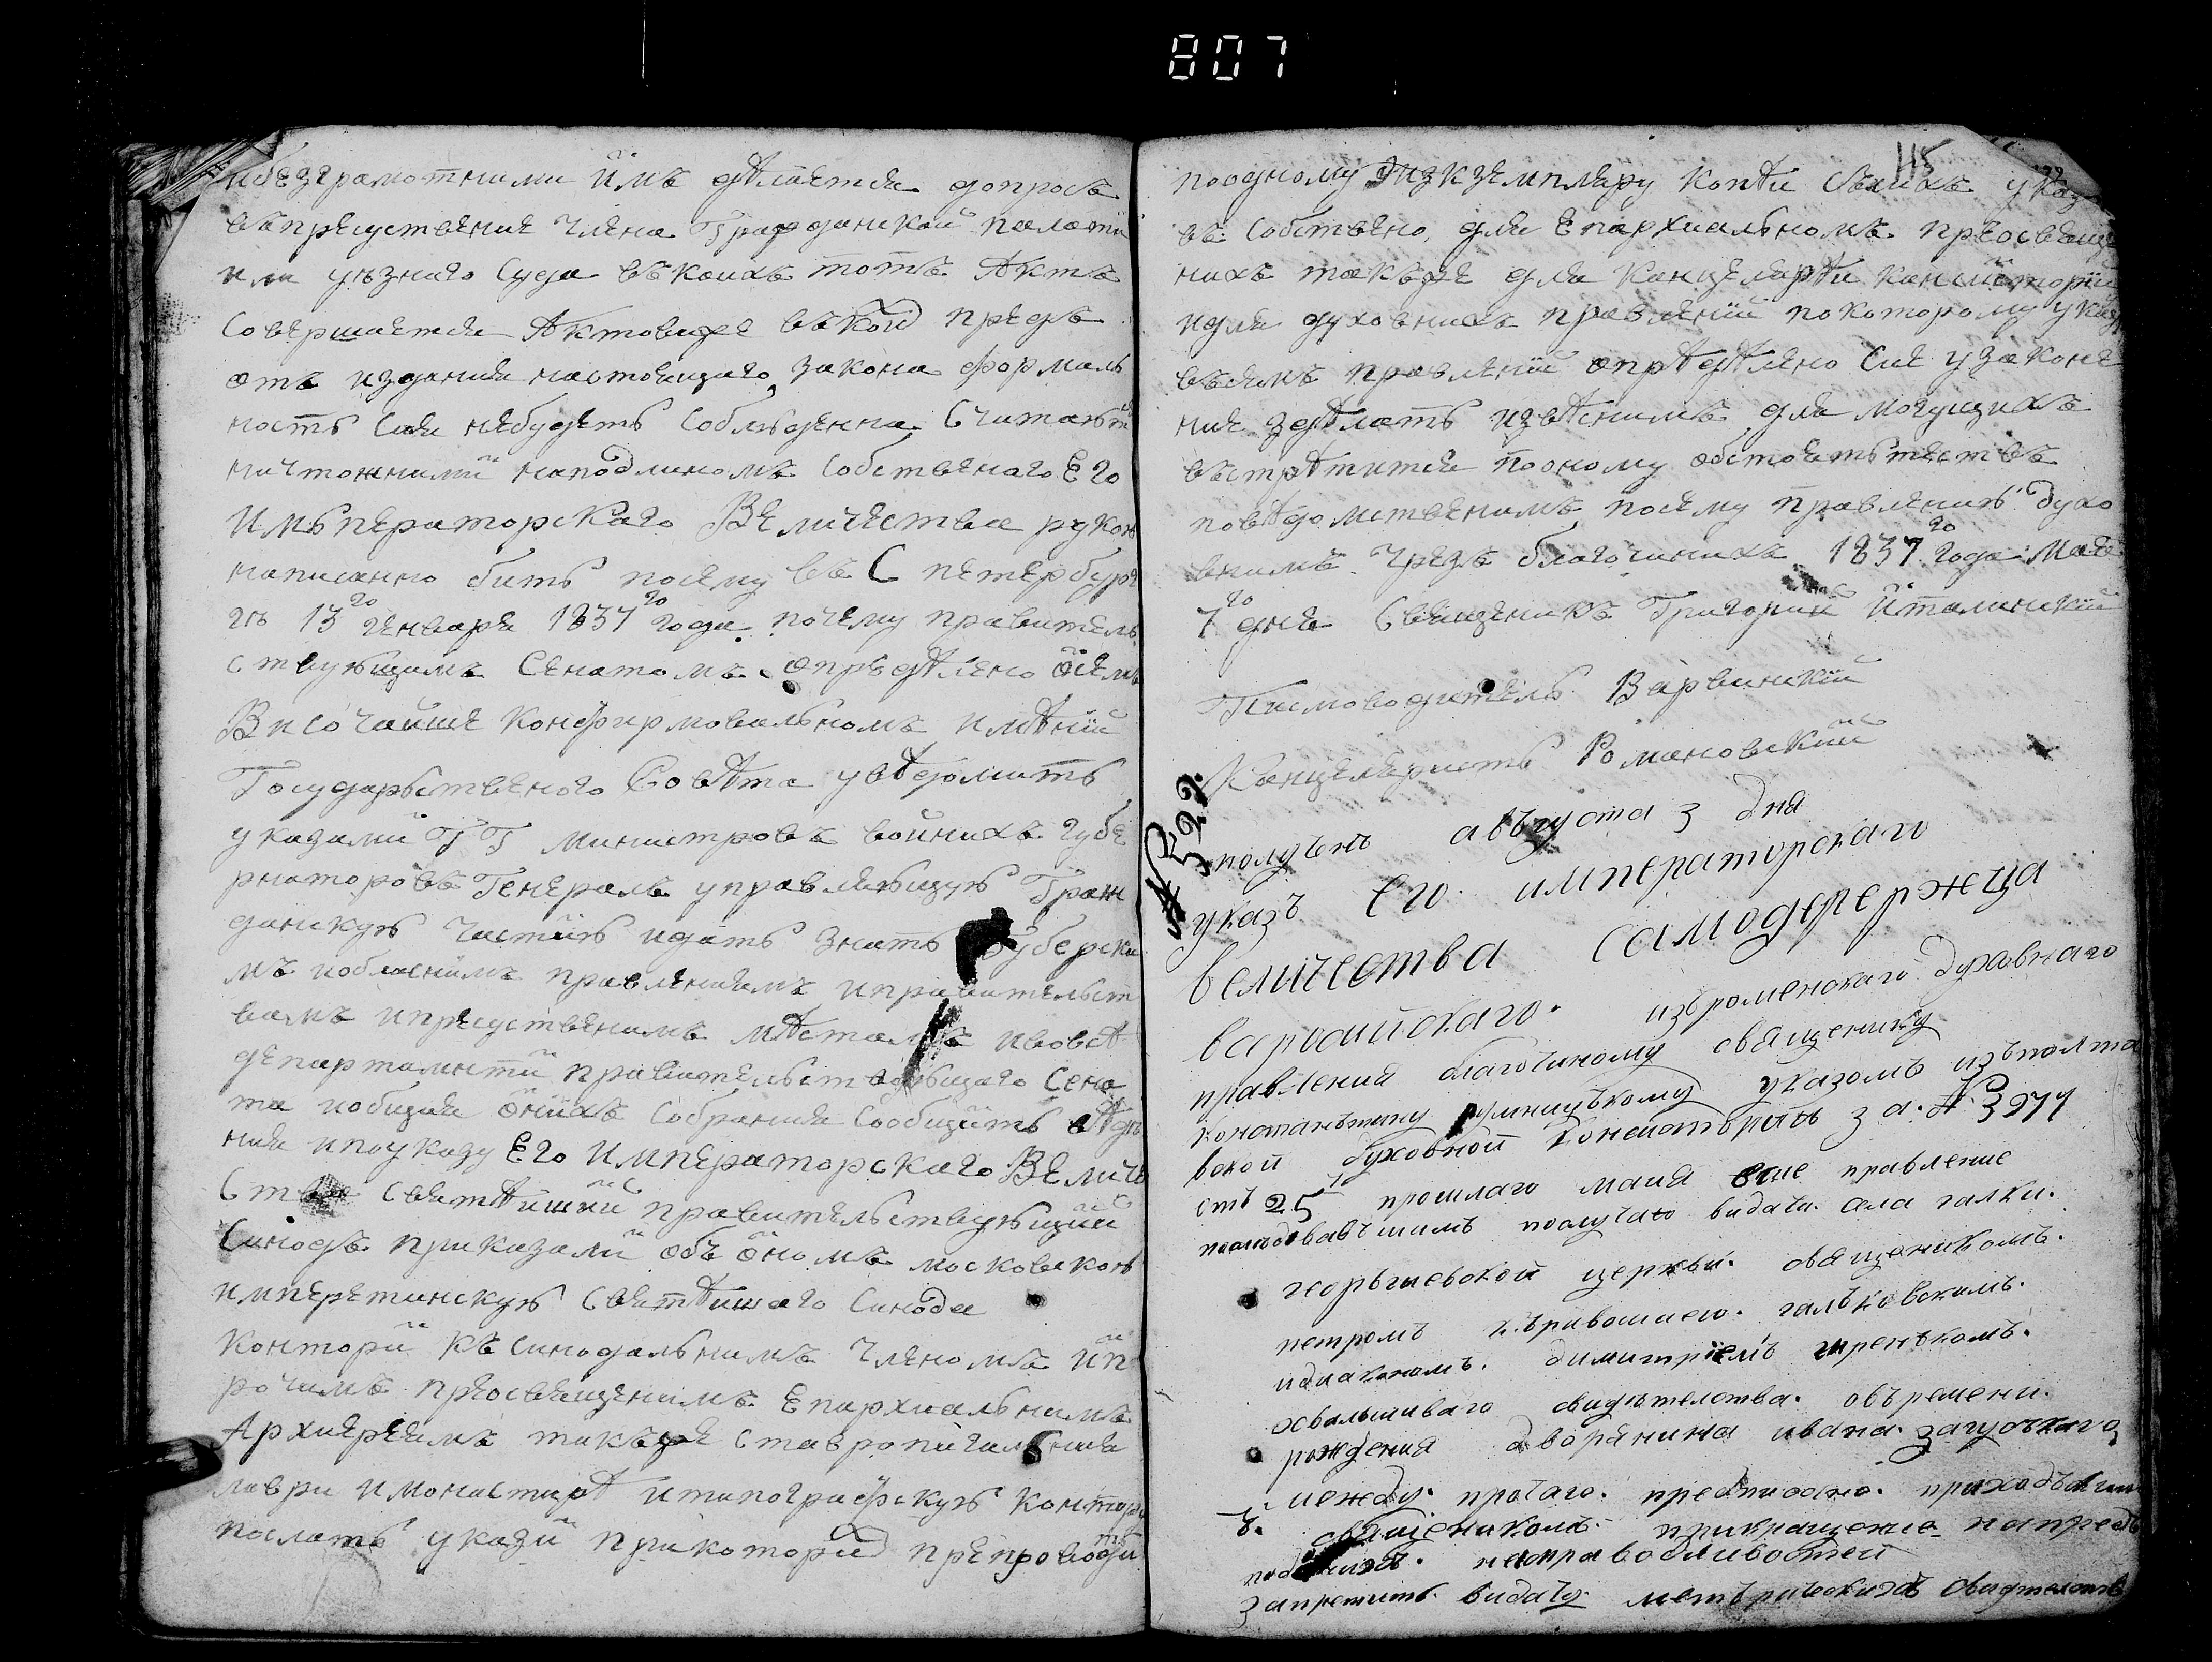 807
115
ибезграмотними имъ дѣлаетия допросъ
въпрысуствение члена Гражданской палати
или уезнаго Суда въкоихъ тотъ Актъ
Совершаетия Актовиже въкои предъ
отъ издания настоящаго закона формаль
ность Сия небудетъ Соблюденна Считают
ничтожними наподлиномъ Собственаго Его
Имъператорскаго Величества рукою
написанно бить посему въ С петербур
гъ 13го генваря 1837го года почему правитель
ствующимъ Сенатомъ опредѣлено осемъ
Височайше Конфирмовальномъ имѣнии
Государьственого Совѣта уведомить
указами ГГ министровъ войнихъ губе
рнаторовъ Генералъ управляющую Граж
данкую частию идать знать губерски
мъ иобласнимъ правлениямъ иправительст
вамъ ипресуственимъ мѣстамъ ивовсѣ
департаменти правительствующаго Сена
та иобщия онихъ Собрания Сообщить вѣде
ния ипоуказу Его Императорскаго Величе
Ства Святѣиший правительствующий
Синодъ приказали объ ономъ московскою
имперетинскую Святѣишаго Синода
Контори Къ Синодальнимъ членомъ ип
рочимъ преосвященимъ Епархиальнимъ
Архиереямъ такъже ставропигиальния
лаври имонастирѣ итипографскую контору
послать укази прикотори препроводи
поодному Экземпляру копѣи Съихъ указ
въ Собствено для Епархиальномъ преосвящ
нихъ такъже для канцелярѣи консистории
идля духовнихъ правлений покоторому указу
въсемъ правлении опрѣдѣлено Сие узаконе
ние здѣлать извѣснимъ для могущихъ
въстрѣтится поономy обстоятьтествъ
повѣдомственимъ посему правлению духо
внимъ чрезъ благочинихъ 1837го года Мая
7го дня Священикъ Григорий Италинский
Писмоводитель Варвинский
Канцеляристъ Романовский
№ 522.
получънъ авъгуста 3 дня
указъ Его императорскаго
величества самодерержеца
всеросийскаго. изъроменскаго духавнаго
правления благочиному священику
констанътину румницъкому указомъ изъполта
вской духовной консисториъ за. № 3977
отъ 25 прошлаго мая сие правление
последовавъшимъ получаю видачи. села галки.
георъгиевской церкви. священикомъ.
петромъ къривошиею. галъковскимъ.
идиакономъ. димитриемъ тренъкомъ.
хвальшиваго свидителства. объремени.
рождения дворянина ивана. загусъкаго
между. прочаго. предписано. приходъским
ъ. священикомъ. прикращение напредъ
подобнихъ. несправодливостей
запретить. видачу метърическихъ свидетелств